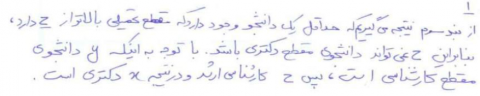 ۱
از بند سوم نتیجه می گیریم که حداقل یک دانشجو وجود دارد که مقطع تحصیلی بالاتر از ح دارد،
بنابراین ح نمی تواند دانشجوی مقطع دکتری باشد. با توجه به اینکه y دانشجوی
مقطع کارشناسی است، پس ح کارشناسی ارشد و در نتیجه x دکتری است.